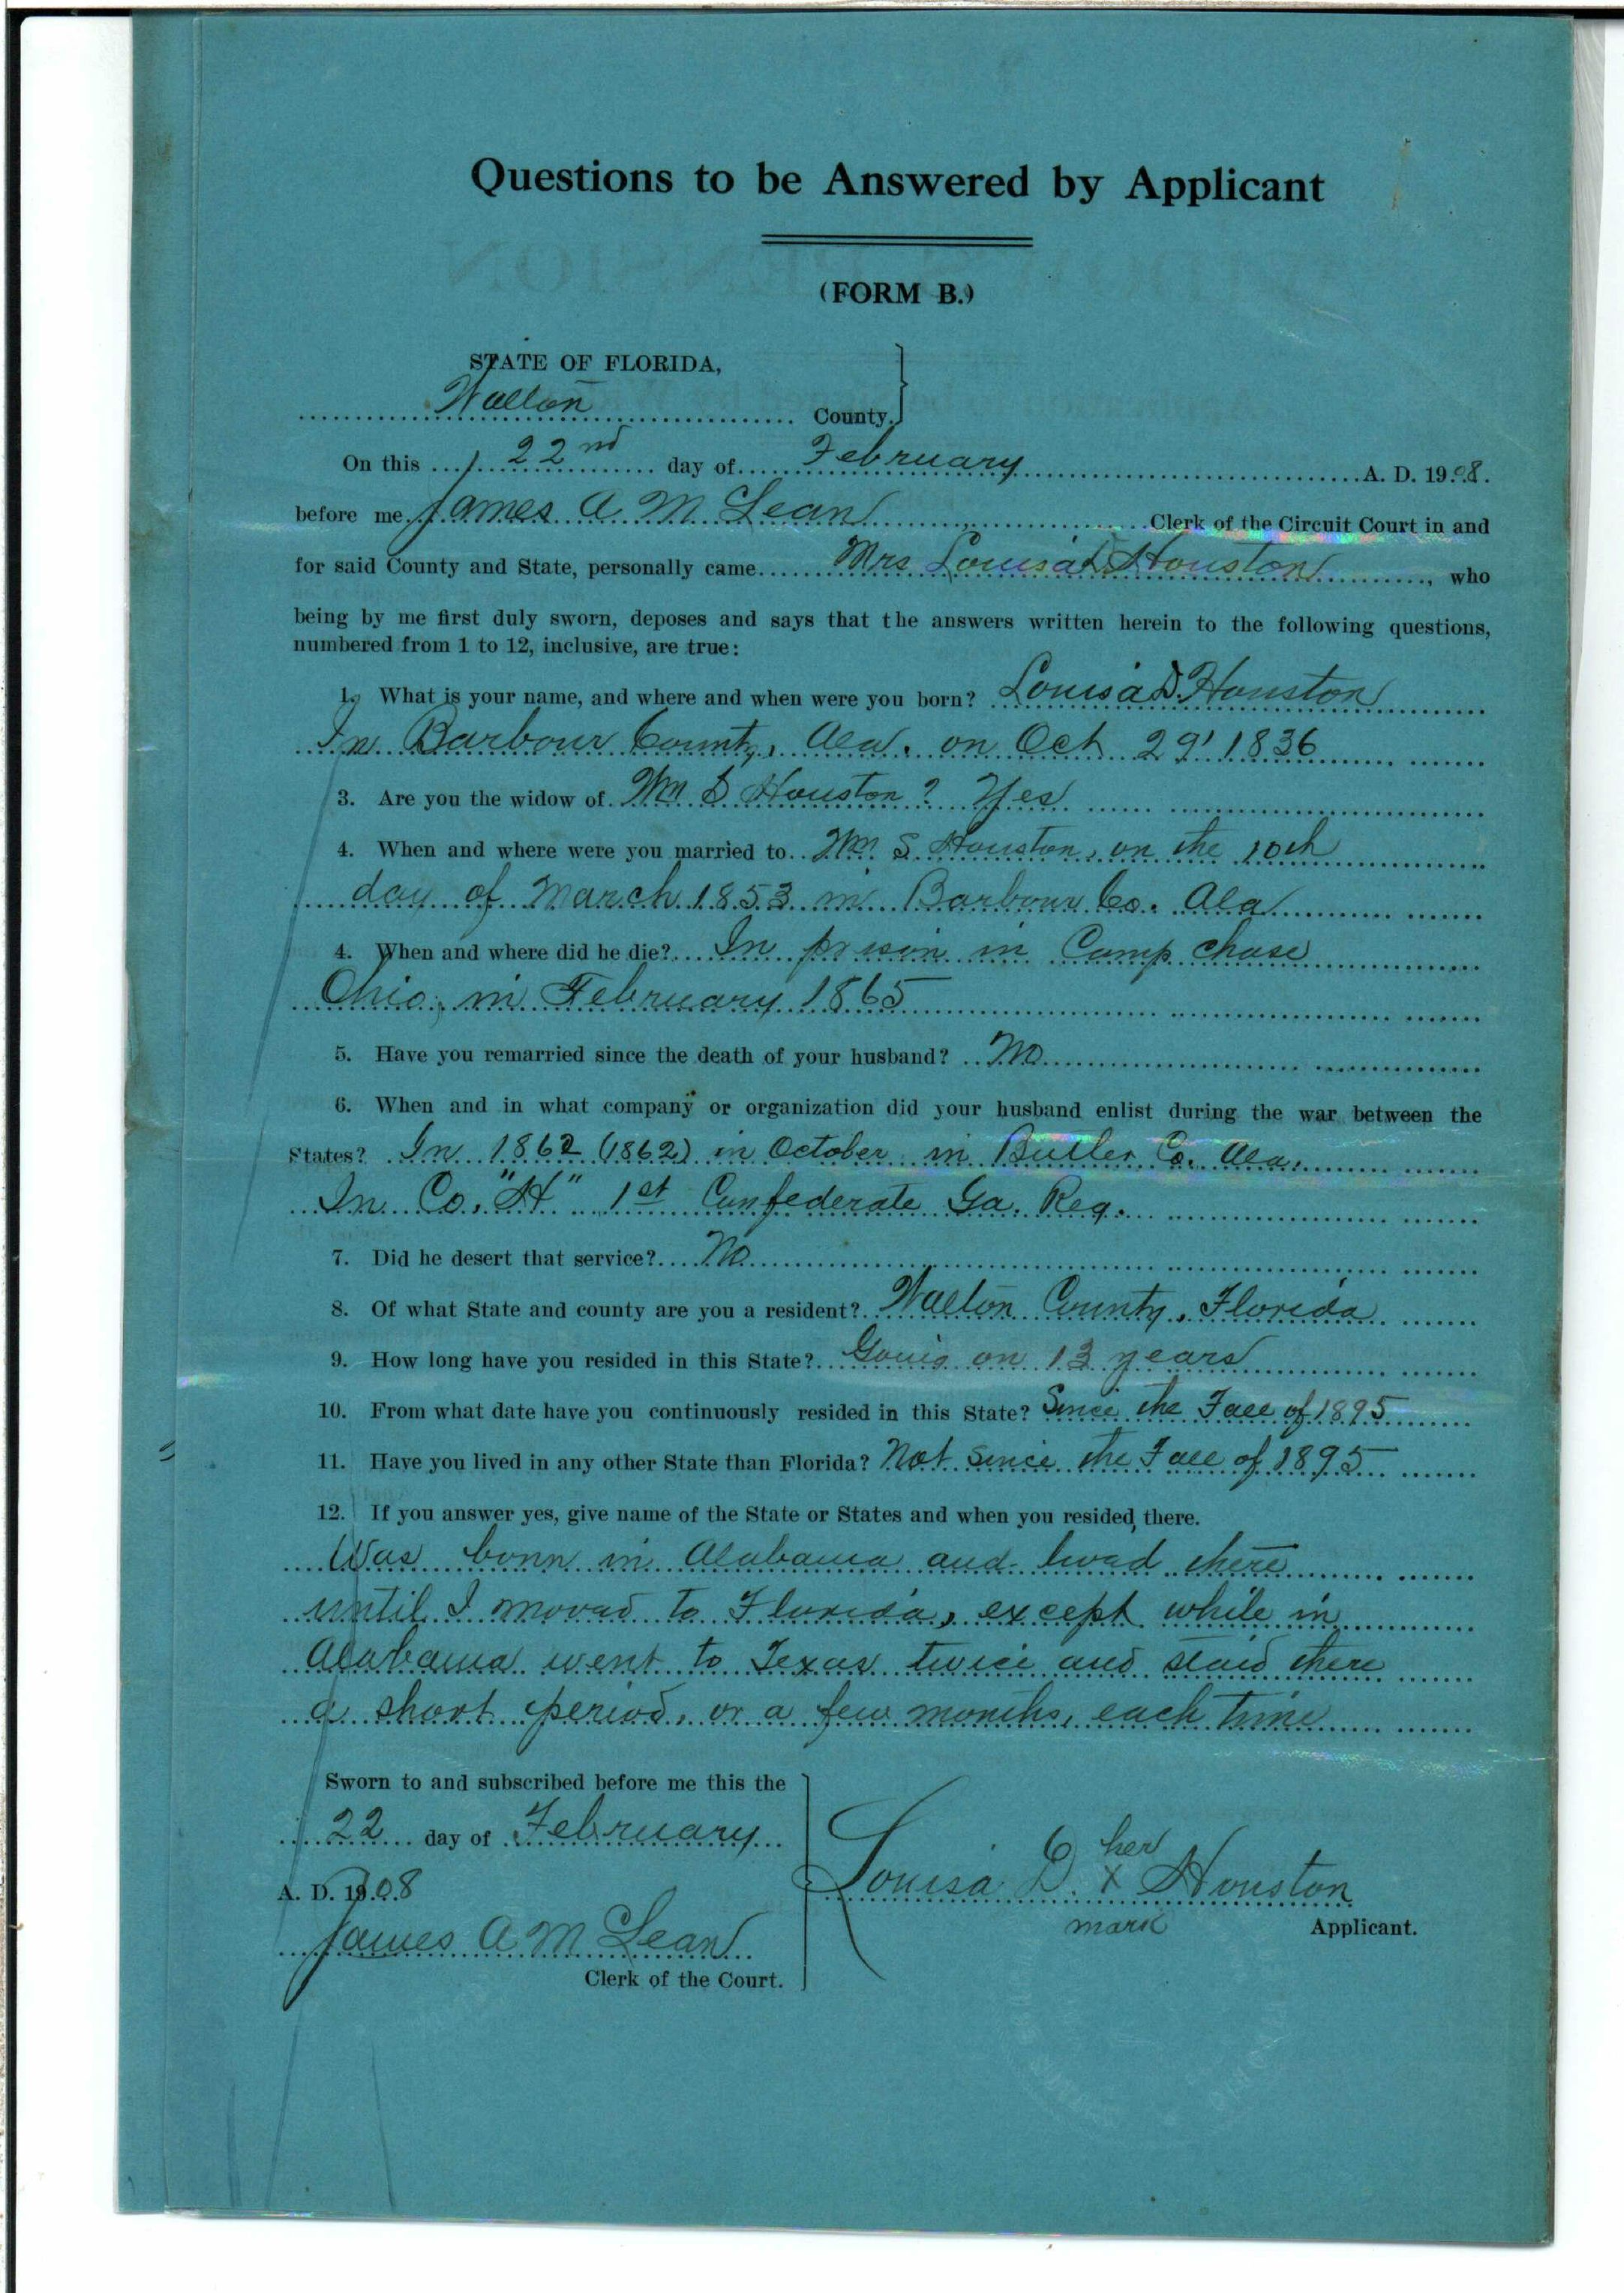 Questions to be Answered by Applicant
(FORM B.)
STATE OF FLORIDA,
Walton County.
On this 22nd day of February A. D. 1908.
before me James A McLean Clerk of the Circuit Court in and
for said County and State, personally came Mrs Louisa D Houston, who
being by me first duly sworn, deposes and says that the answers written herein to the following questions,
numbered from 1 to 12, inclusive, are true:
1. What is your name, and where and when were you born? Louisa D. Houston
In Barbour County, Ala. on Oct 29' 1836
3. Are you the widow of Wm S Houston? Yes
4. When and where were you married to Wm. S Houston, on the 10th
day of March 1853 in Barbour Co. Ala
4. When and where did he die? In prison in Camp chase
Ohio, in February 1865
5. Have you remarried since the death of your husband? No
6. When and in what company or organization did your husband enlist during the war between the
States? In 1862 (1862) in October in Butler Co. Ala.
In Co. "H" 1st Confederate Ga. Reg.
7. Did he desert that service? No
8. Of what State and county are you a resident? Walton County, Florida
9. How long have you resided in this State? Going on 13 years
10. From what date have you continuously resided in this State? Since the Fall of 1895
11. Have you lived in any other State than Florida? Not since the Fall of 1895
12. If you answer yes, give name of the State or States and when you resided there.
Was born in Alabama and livad there
until I movad to Florida, except while in
Alabama went to Texas twice and staid there
a short period, or a few months, each time
Sworn to and subscribed before me this the
22 day of February
A. D. 1908
James A McLean
Clerk of the Court.
her
Louisa D. X Houston
mark Applicant.